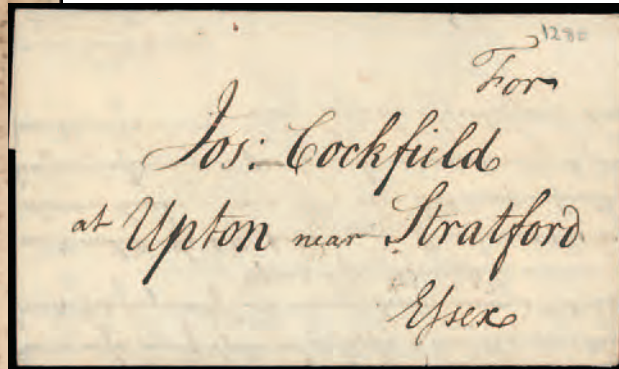 1280
For
Jos: Cockfield
at Upton near Stratford
Eſsex